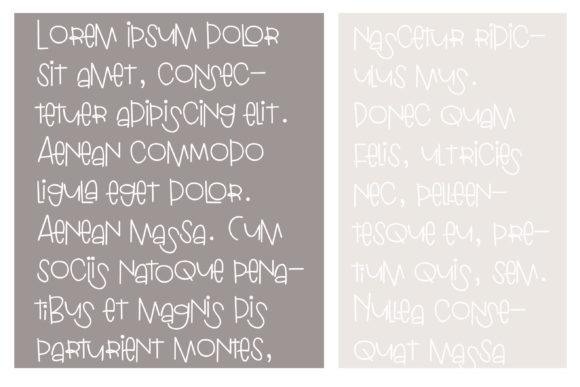 Lorem ipsum dolor
sit amet, consec-
tetuer adipiscing elit.
Aenean commodo
ligula eget dolor.
Aenean massa. Cum
sociis natoque pena-
tibus et magnis dis
parturient montes,
nascetur ridic-
ulus mus.
Donec quam
felis, ultricies
nec, pelleen-
tesque eu, pre-
tium quis, sem.
Nullea conse-
quat massa